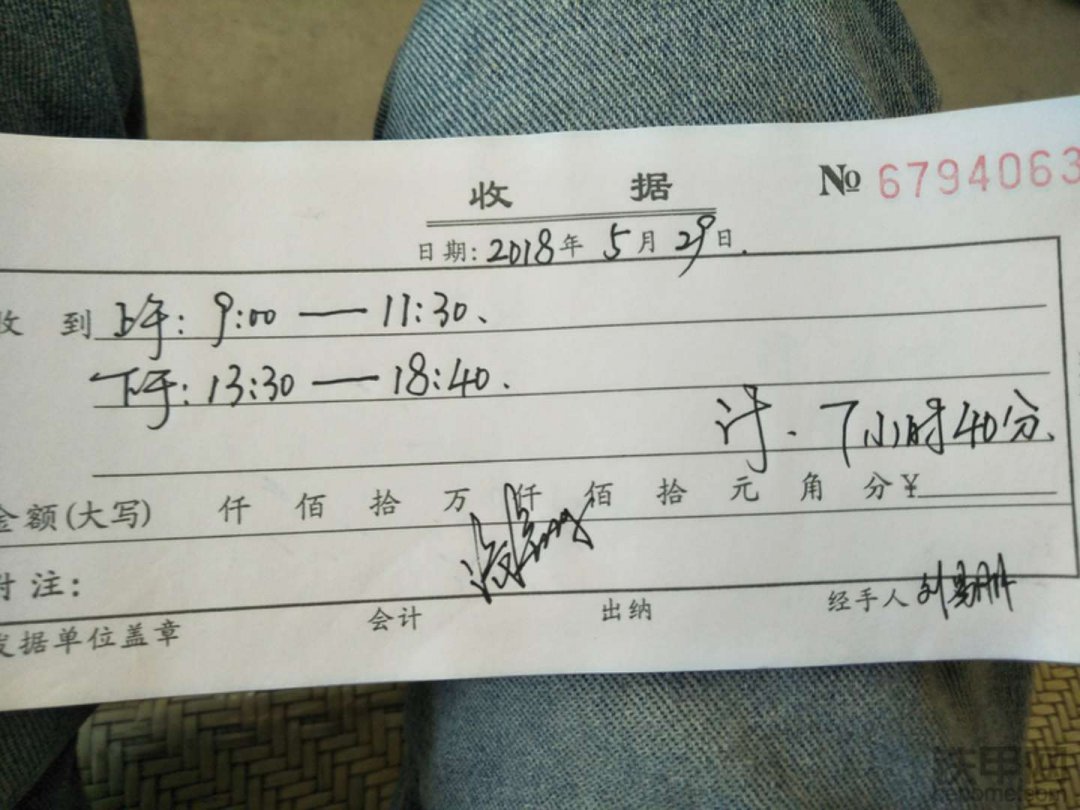 收 据
№ 6794063
日期: 2018年 5月 29日.
收 到 上午: 9:00 — 11:30、
下午: 13:30 — 18:40.
计. 7小时40分、
金额(大写) 仟 佰 拾 万 仟 佰 拾 元 角 分 ¥
附 注:
发据单位盖章 会计 出纳 经手人
铁甲